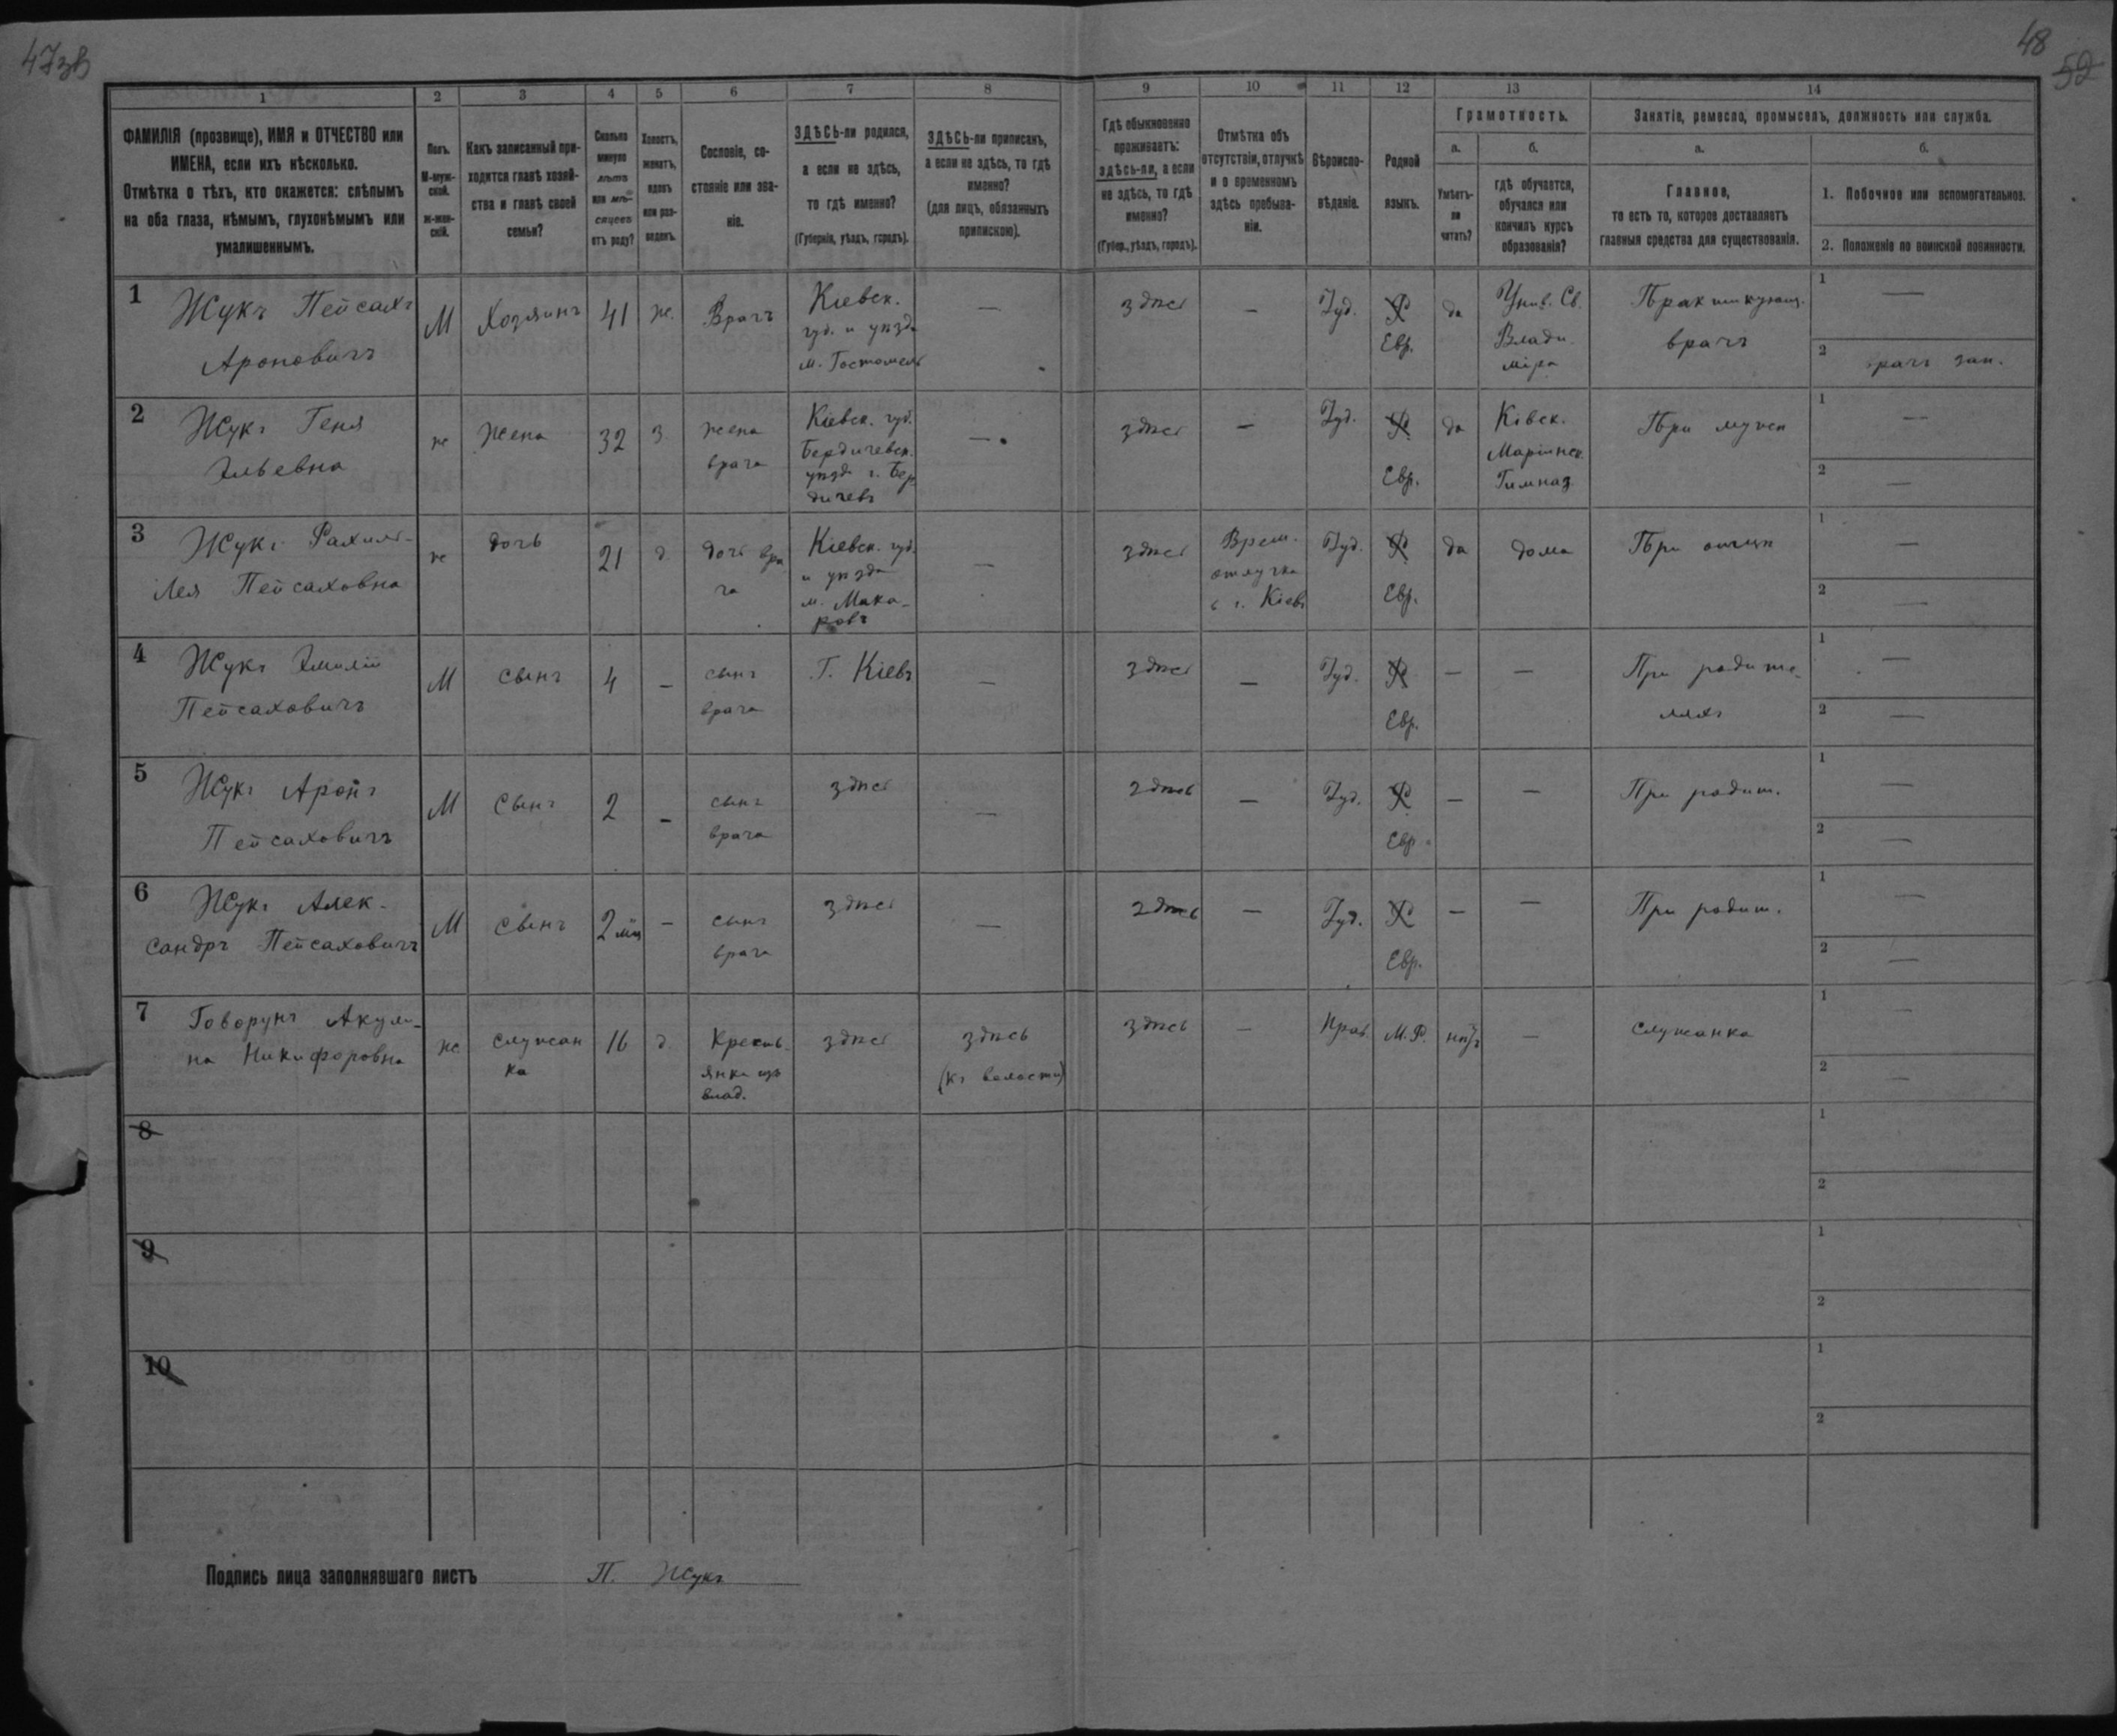 47зв
48
52
1 2 3 4 5 6 7 8 9 10 11 12 13 14
ФАМИЛІЯ (прозвище), ИМЯ и ОТЧЕСТВО или
ИМЕНА, если ихъ нѣсколько.
Отмѣтка о тѣхъ, кто окажется: слѣпымъ
на оба глаза, нѣмымъ, глухонѣмымъ или
умалишеннымъ.
Полъ.
М-муж-
ской.
Ж-жен-
скій.
Какъ записанный при-
ходится главѣ хозяй-
ства и главѣ своей
семьи?
Сколько
минуло
лѣтъ
или мѣ-
сяцевъ
отъ роду?
Холостъ,
женатъ,
вдовъ
или раз-
веденъ.
Сословіе, со-
стояніе или зва-
ніе.
ЗДѢСЬ-ли родился,
а если не здѣсь,
то гдѣ именно?
(Губернія, уѣздъ, городъ).
ЗДѢСЬ-ли приписанъ,
а если не здѣсь, то гдѣ
именно?
(для лицъ, обязанныхъ
припискою).
Гдѣ обыкновенно
проживаетъ:
здѣсь-ли, а если
не здѣсь, то гдѣ
именно?
(Губер., уѣздъ, городъ).
Отмѣтка объ
отсутствіи, отлучкѣ
и о временномъ
здѣсь пребыва-
ніи.
Вѣроиспо-
вѣданіе.
Родной
языкъ.
Грамотность.
а.
Умѣетъ-
ли
читать?
б.
гдѣ обучается,
обучался или
кончилъ курсъ
образованія?
Занятіе, ремесло, промыселъ, должность или служба.
а.
Главное,
то есть то, которое доставляетъ
главныя средства для существованія.
б.
1. Побочное или вспомогательное.
2. Положеніе по воинской повинности.
1 Жукъ Пейсахъ
Ароновичъ
М
Хозяинъ
41
ж.
Врачъ
Кіевск.
губ. и уѣзда
м. Гостомель
—
здѣсь
—
Іуд.
Р
Евр.
да
Унив. Св.
Влади
міра
Практикующ.
врачъ
1 —
2 врачъ зап.
2 Жукъ Геня
Эльевна
ж
Жена
32
з.
жена
врача
Кіевск. губ.
Бердичевск.
уѣзд. г. Бер
дичевъ
—
здѣсь
—
Іуд.
Р
Евр.
да
Кіевск.
Маріинск.
Гимназ
При мужѣ
1 —
2 —
3 Жукъ Рахиль-
Лея Пейсаховна
ж
дочь
21
д.
дочь вра
ча
Кіевск. губ.
и уѣзда
м. Мака-
ровъ
—
здѣсь
Врем.
отлучка
в г. Кіевъ
Іуд.
Р
Евр.
да
дома
При отцѣ
1 —
2 —
4 Жукъ Эмилій
Пейсаховичъ
М
сынъ
4
—
сынъ
врача
Г. Кіевъ
—
здѣсь
—
Іуд.
Р
Евр.
—
—
При родите-
ляхъ
1 —
2 —
5 Жукъ Аронъ
Пейсаховичъ
М
Сынъ
2
—
сынъ
врача
здѣсь
—
здѣсь
—
Іуд.
Р
Евр.
—
—
При родит.
1 —
2 —
6 Жукъ Алек-
сандръ Пейсаховичъ
М
сынъ
2 мц
—
сынъ
врача
здѣсь
—
здѣсь
—
Іуд.
Р
Евр.
—
—
При родит.
1 —
2 —
7 Говорунъ Акули-
на Никифоровна
ж
служан
ка
16
д.
Кресть-
янка изъ
влад.
здѣсь
здѣсь
(къ волости)
здѣсь
—
Прав.
М.Р.
нѣтъ
—
служанка
1 —
2 —
8
1
2
9
1
2
10
1
2
Подпись лица заполнявшаго листъ П. Жукъ